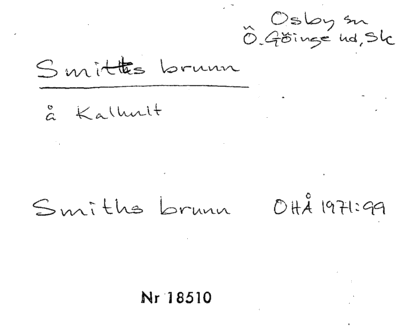 Osby sn
Ö. Göinge hd, Sk
Smiths brunn
å Kalhult
Smiths brunn OHÅ 1971:99
Nr 18510